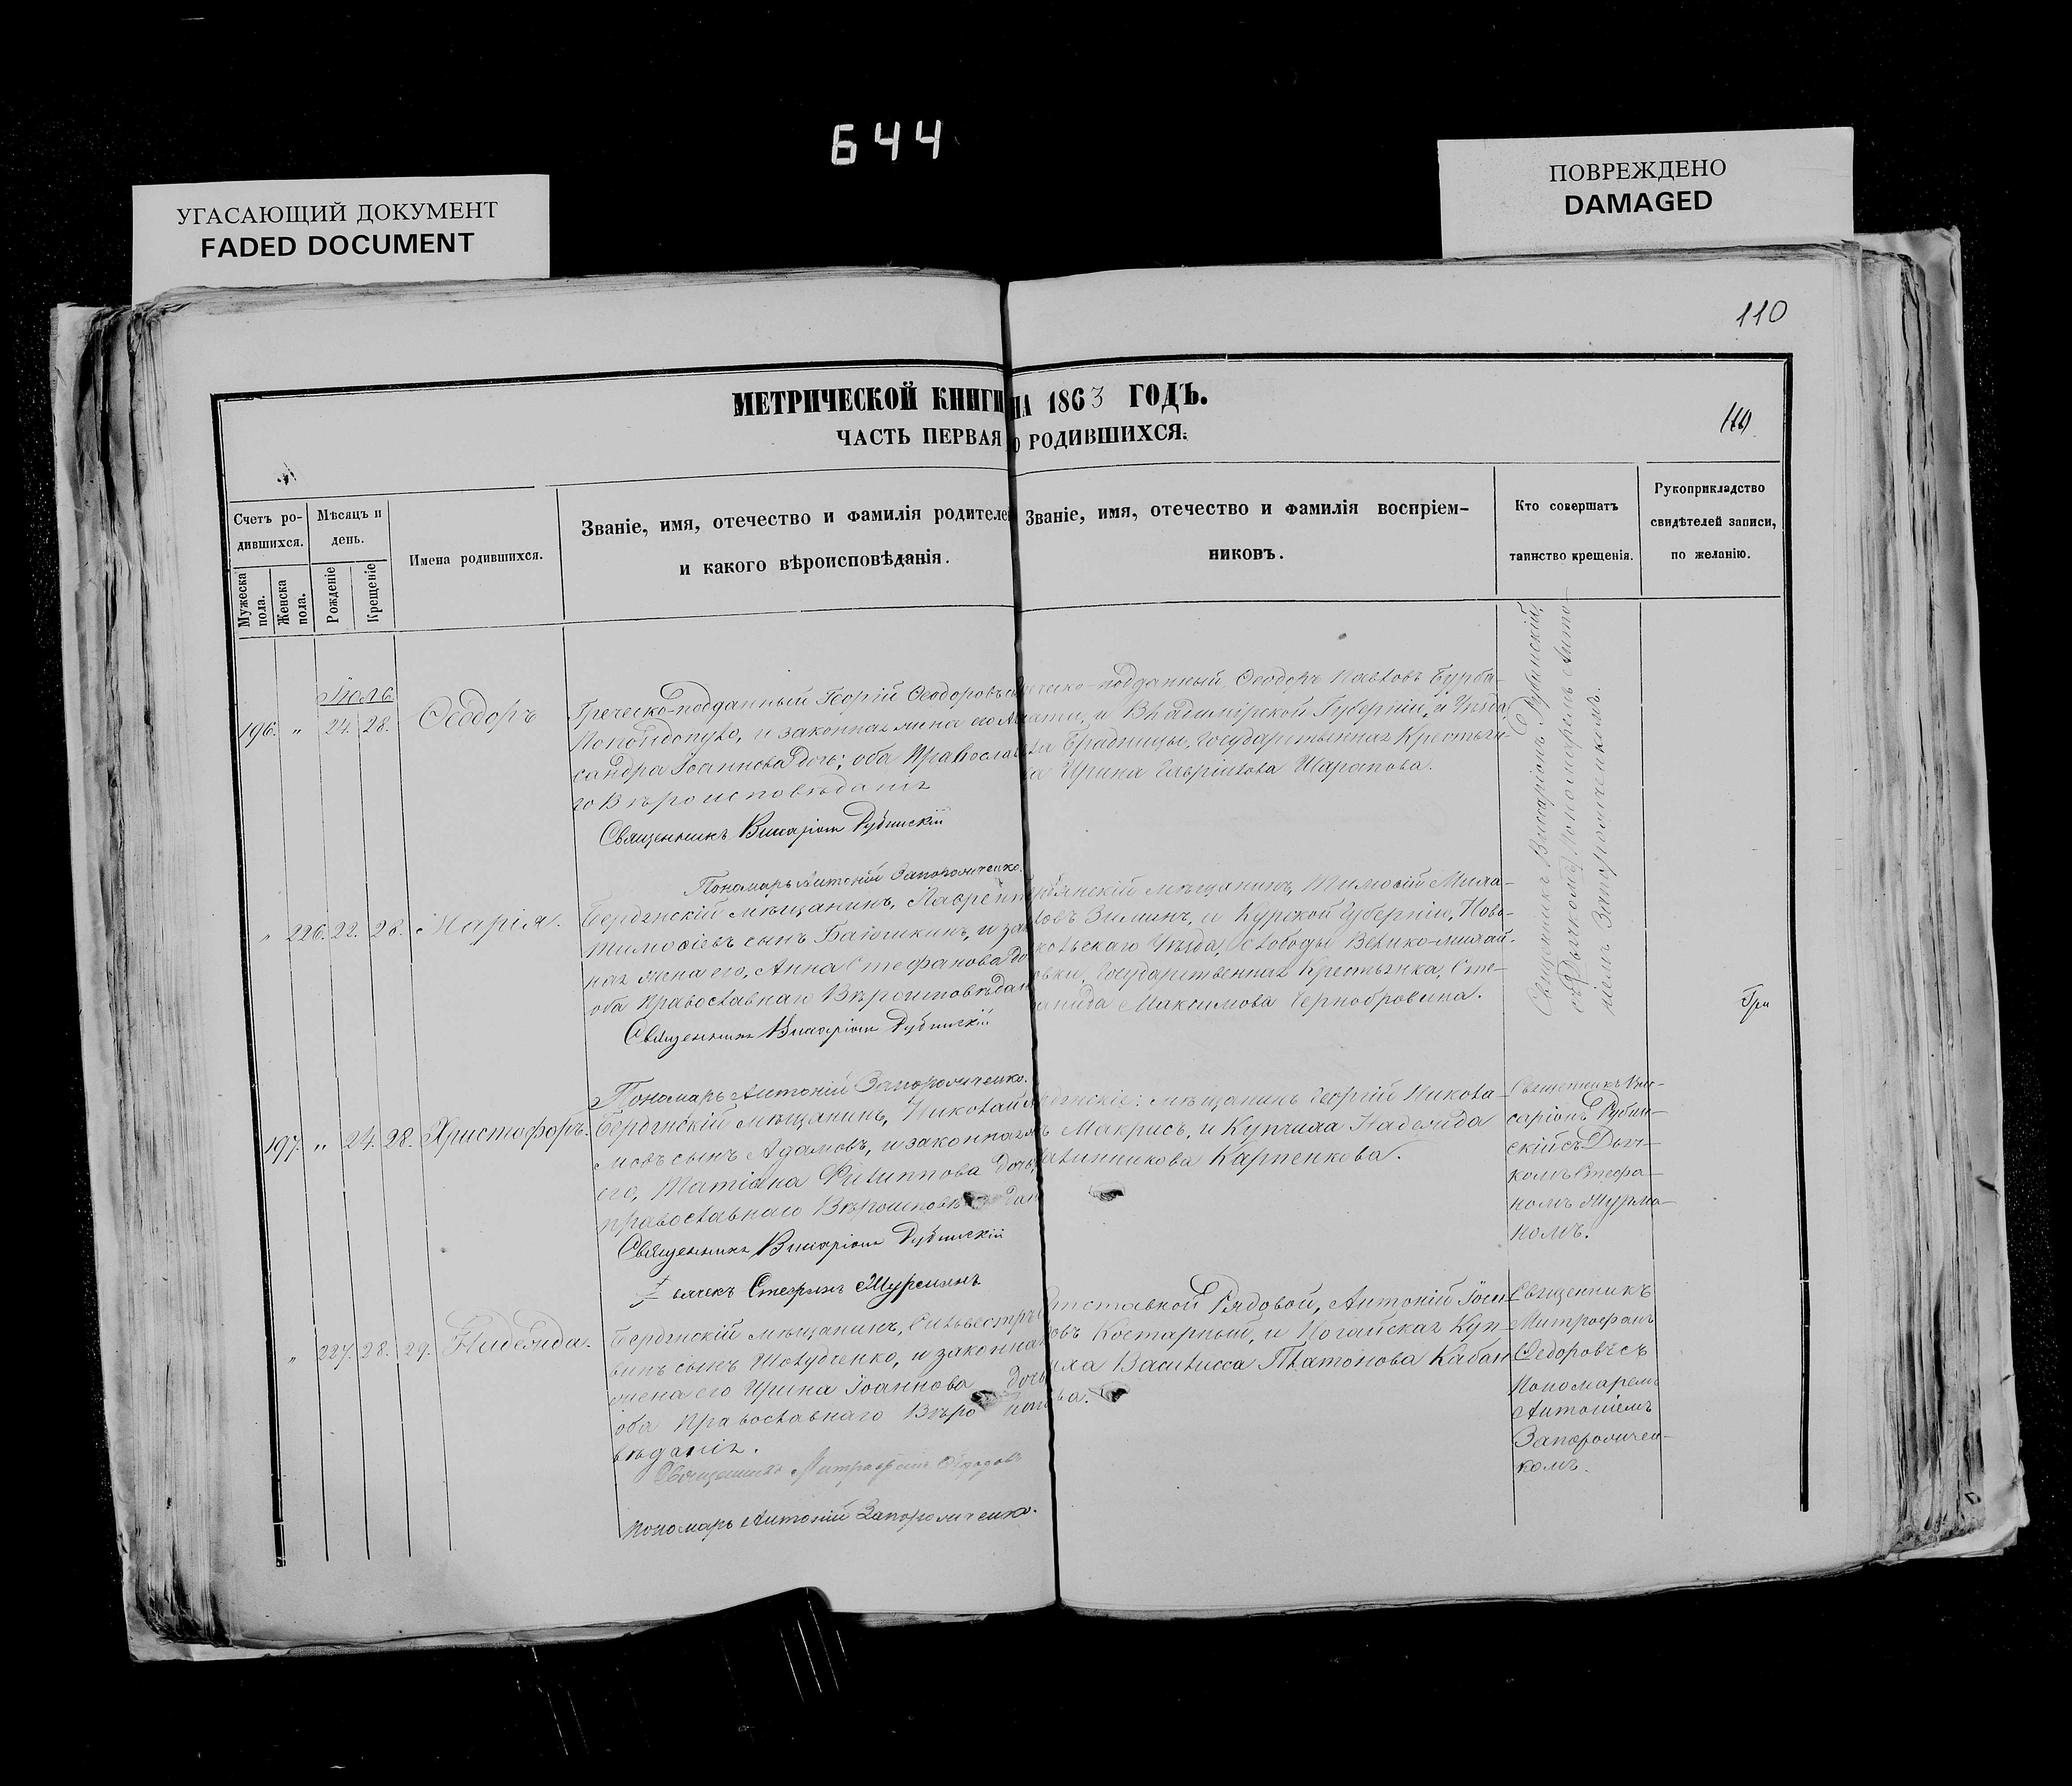 644
УГАСАЮЩИЙ ДОКУМЕНТ
FADED DOCUMENT
ПОВРЕЖДЕНО
DAMAGED
110
МЕТРИЧЕСКОЙ КНИГИ НА 1863 ГОДЪ.
ЧАСТЬ ПЕРВАЯ О РОДИВШИХСЯ.
Счетъ ро-
дившихся.
Мужеска пола.
Женска пола.
Мѣсяцъ и
день.
Рожденіе
Крещеніе
Имена родившихся.
Званіе, имя, отечество и фамилія родителе
и какого вѣроисповѣданія.
Званіе, имя, отечество и фамилія воспріем-
никовъ.
Кто совершатъ
таинство крещенія.
Рукоприкладство
свидѣтелей записи,
по желанію.
Іюль
196. " 24. 28. Ѳеодоръ
Греческо-подданный Георгій Ѳеодоровъ
и законная жена его
сандра Іоаннова дочь; оба Православна
го Вѣроисповѣданія
Священникъ Висаріонъ Рубинскій
Пономарь Антоній Запорожченко.
ческо-подданный Ѳеодоръ Павловъ Бурба-
и Владимірской Губерніи, и Уѣзда
Государственная Крестьян-
ка Ирина Гавріилова Шарапова.
Священникъ Висаріонъ Рубинскій,
съ Дьячкомъ Пономаремъ Анто-
ніемъ Запорожченкомъ.
" 226. 22. 28. Марія.
Бердянскій мѣщанинъ, Лаврен
тимоѳіевъ сынъ Баюшкинъ, и за
ная жена его, Анна Стефанова до
оба Православнаго Вѣроисповѣдан
Священникъ Висаріонъ Рубинскій
Пономарь Антоній Запорожченко.
дянскій мѣщанинъ, Тимоѳій Миха-
ловъ Зиминъ, и Курской Губерніи, Ново-
скольскаго Уѣзда, слободы Велико-михай-
ловки, Государственная Крестьянка, Сте-
анида Максимова Чернобровина.
Гри
197. " 24. 28. Христофоръ.
Бердянскій мѣщанинъ, Николай
мовъ сынъ Адамовъ, и законная
его, Татіана Филиппова дочь,
православнаго Вѣроисповѣдан
Священникъ Висаріонъ Рубинскій
Дьячекъ Стефанъ Мурманъ
дянскіе: мѣщанинъ Георгій Никола-
Макрисъ, и Купчиха Надежда
Карпенкова.
Священникъ Вис-
саріонъ Рубин-
скій съ Дьяч-
комъ Стефа-
номъ Мурма-
номъ.
" 227. 28. 29. Надежда.
Бердянскій мѣщанинъ, Сильвестръ
винъ сынъ Шолудченко, и законная
жена его Ирина Іоаннова дочь
оба Православнаго Вѣроиспо
вѣданія.
Священникъ Митрофанъ Ѳедоровъ
Пономарь Антоній Запорожченко.
Отставной Рядовой, Антоній Іоси-
овъ Костарный, и Ногайская Куп-
чиха Василисса Платонова Кабан
ва.
Священникъ
Митрофанъ
Ѳедоровъ съ
Пономаремъ
Антоніемъ
Запорожчен-
комъ.